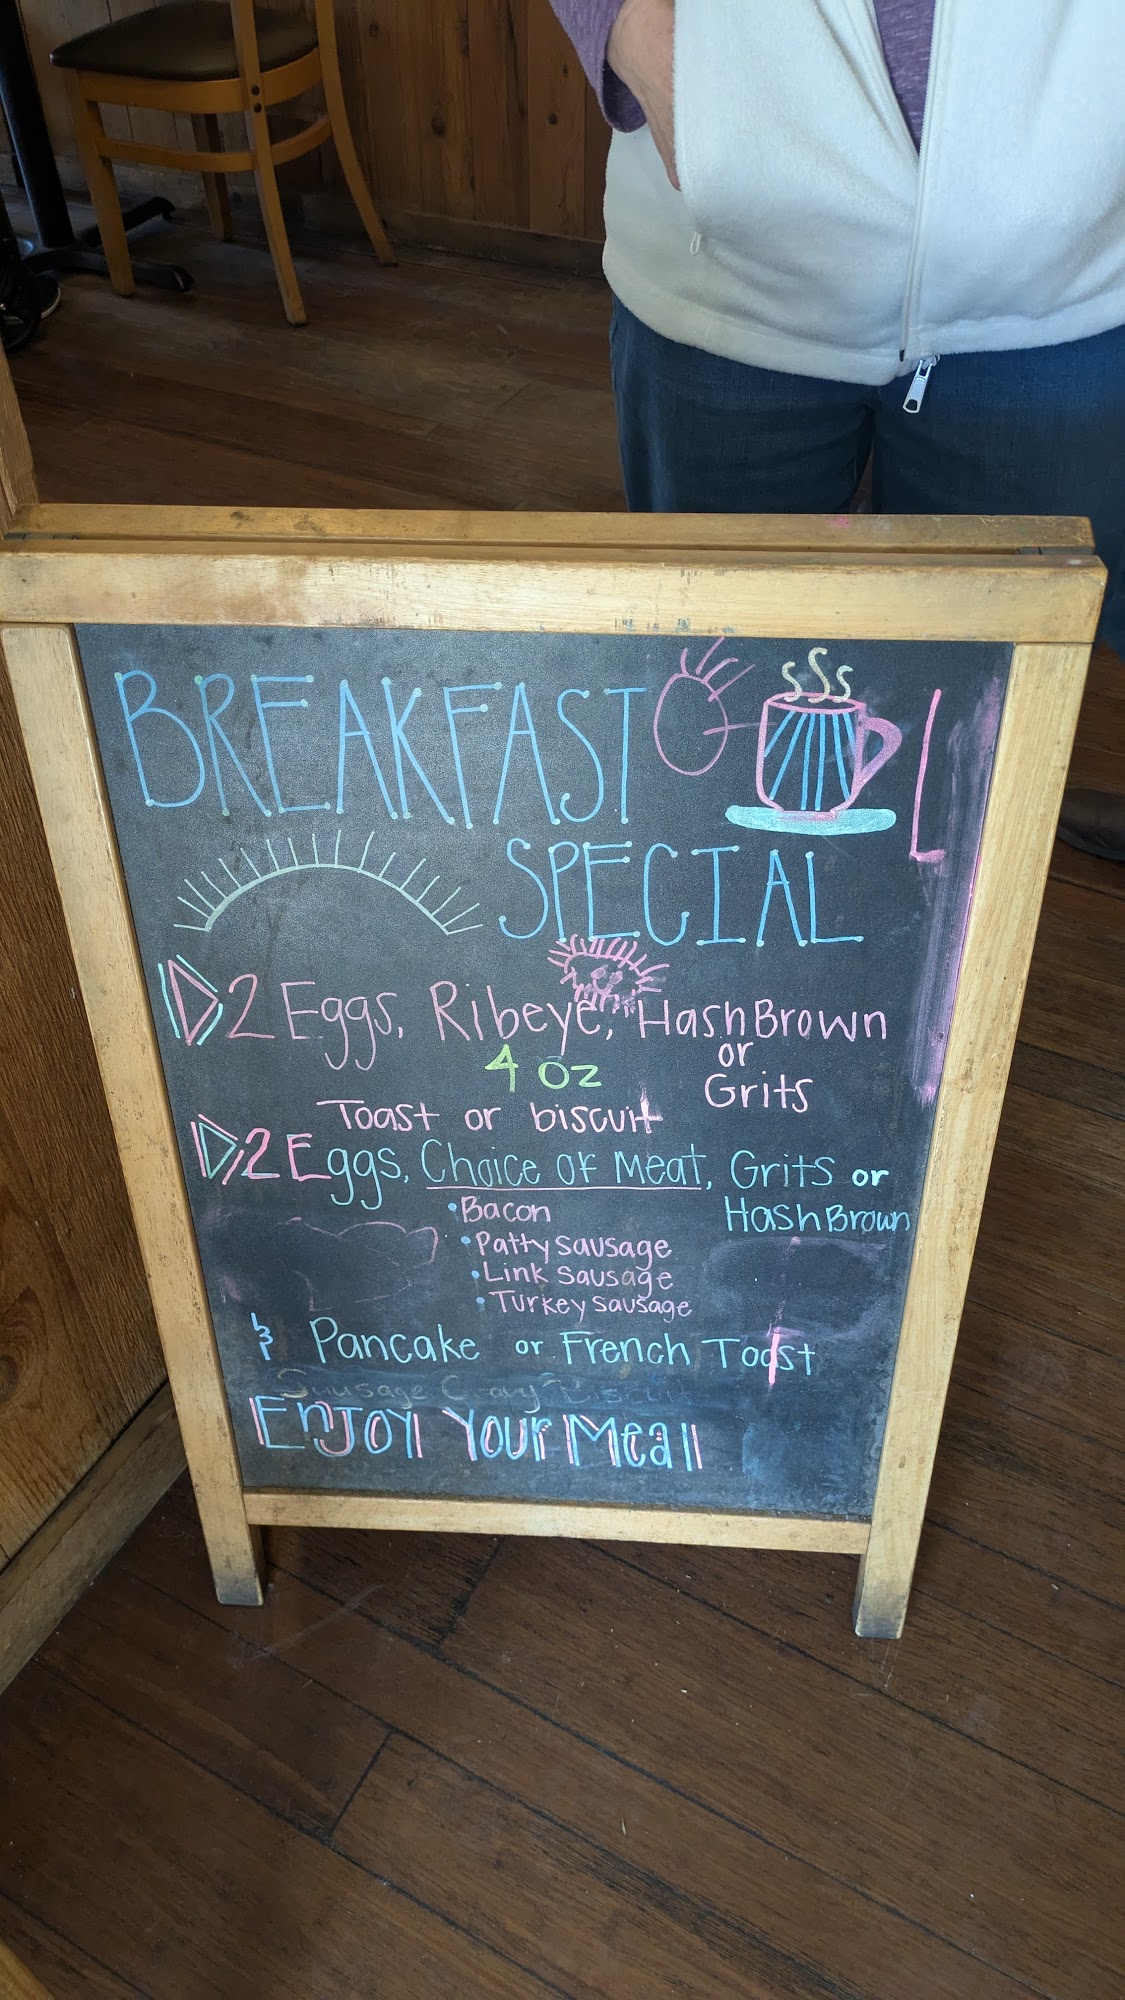 BREAKFAST
SPECIAL
2 Eggs, Ribeye, HashBrown
or
4 oz
Grits
Toast or biscuit
2 Eggs, Choice of Meat, Grits or
HashBrown
• Bacon
• Patty sausage
• Link sausage
• Turkey sausage
& Pancake or French Toast
Sausage Gravy Biscuit
Enjoy Your Meal